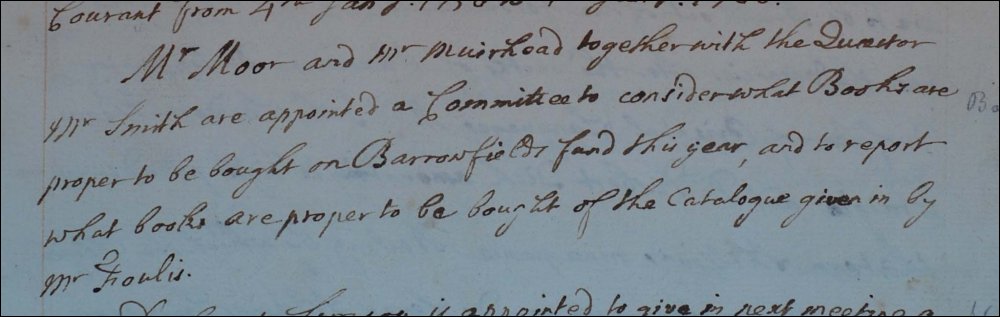 Courant from 4th Jany. 1756 to
Mr Moor and Mr Muirhead together with the Quæstor
Mr Smith are appointed a Committee to consider what Books are
proper to be bought on Barrowfields fund this year, and to report
what books are proper to be bought of the Catalogue given in by
Mr Foulis.
is appointed to give in next meeting a